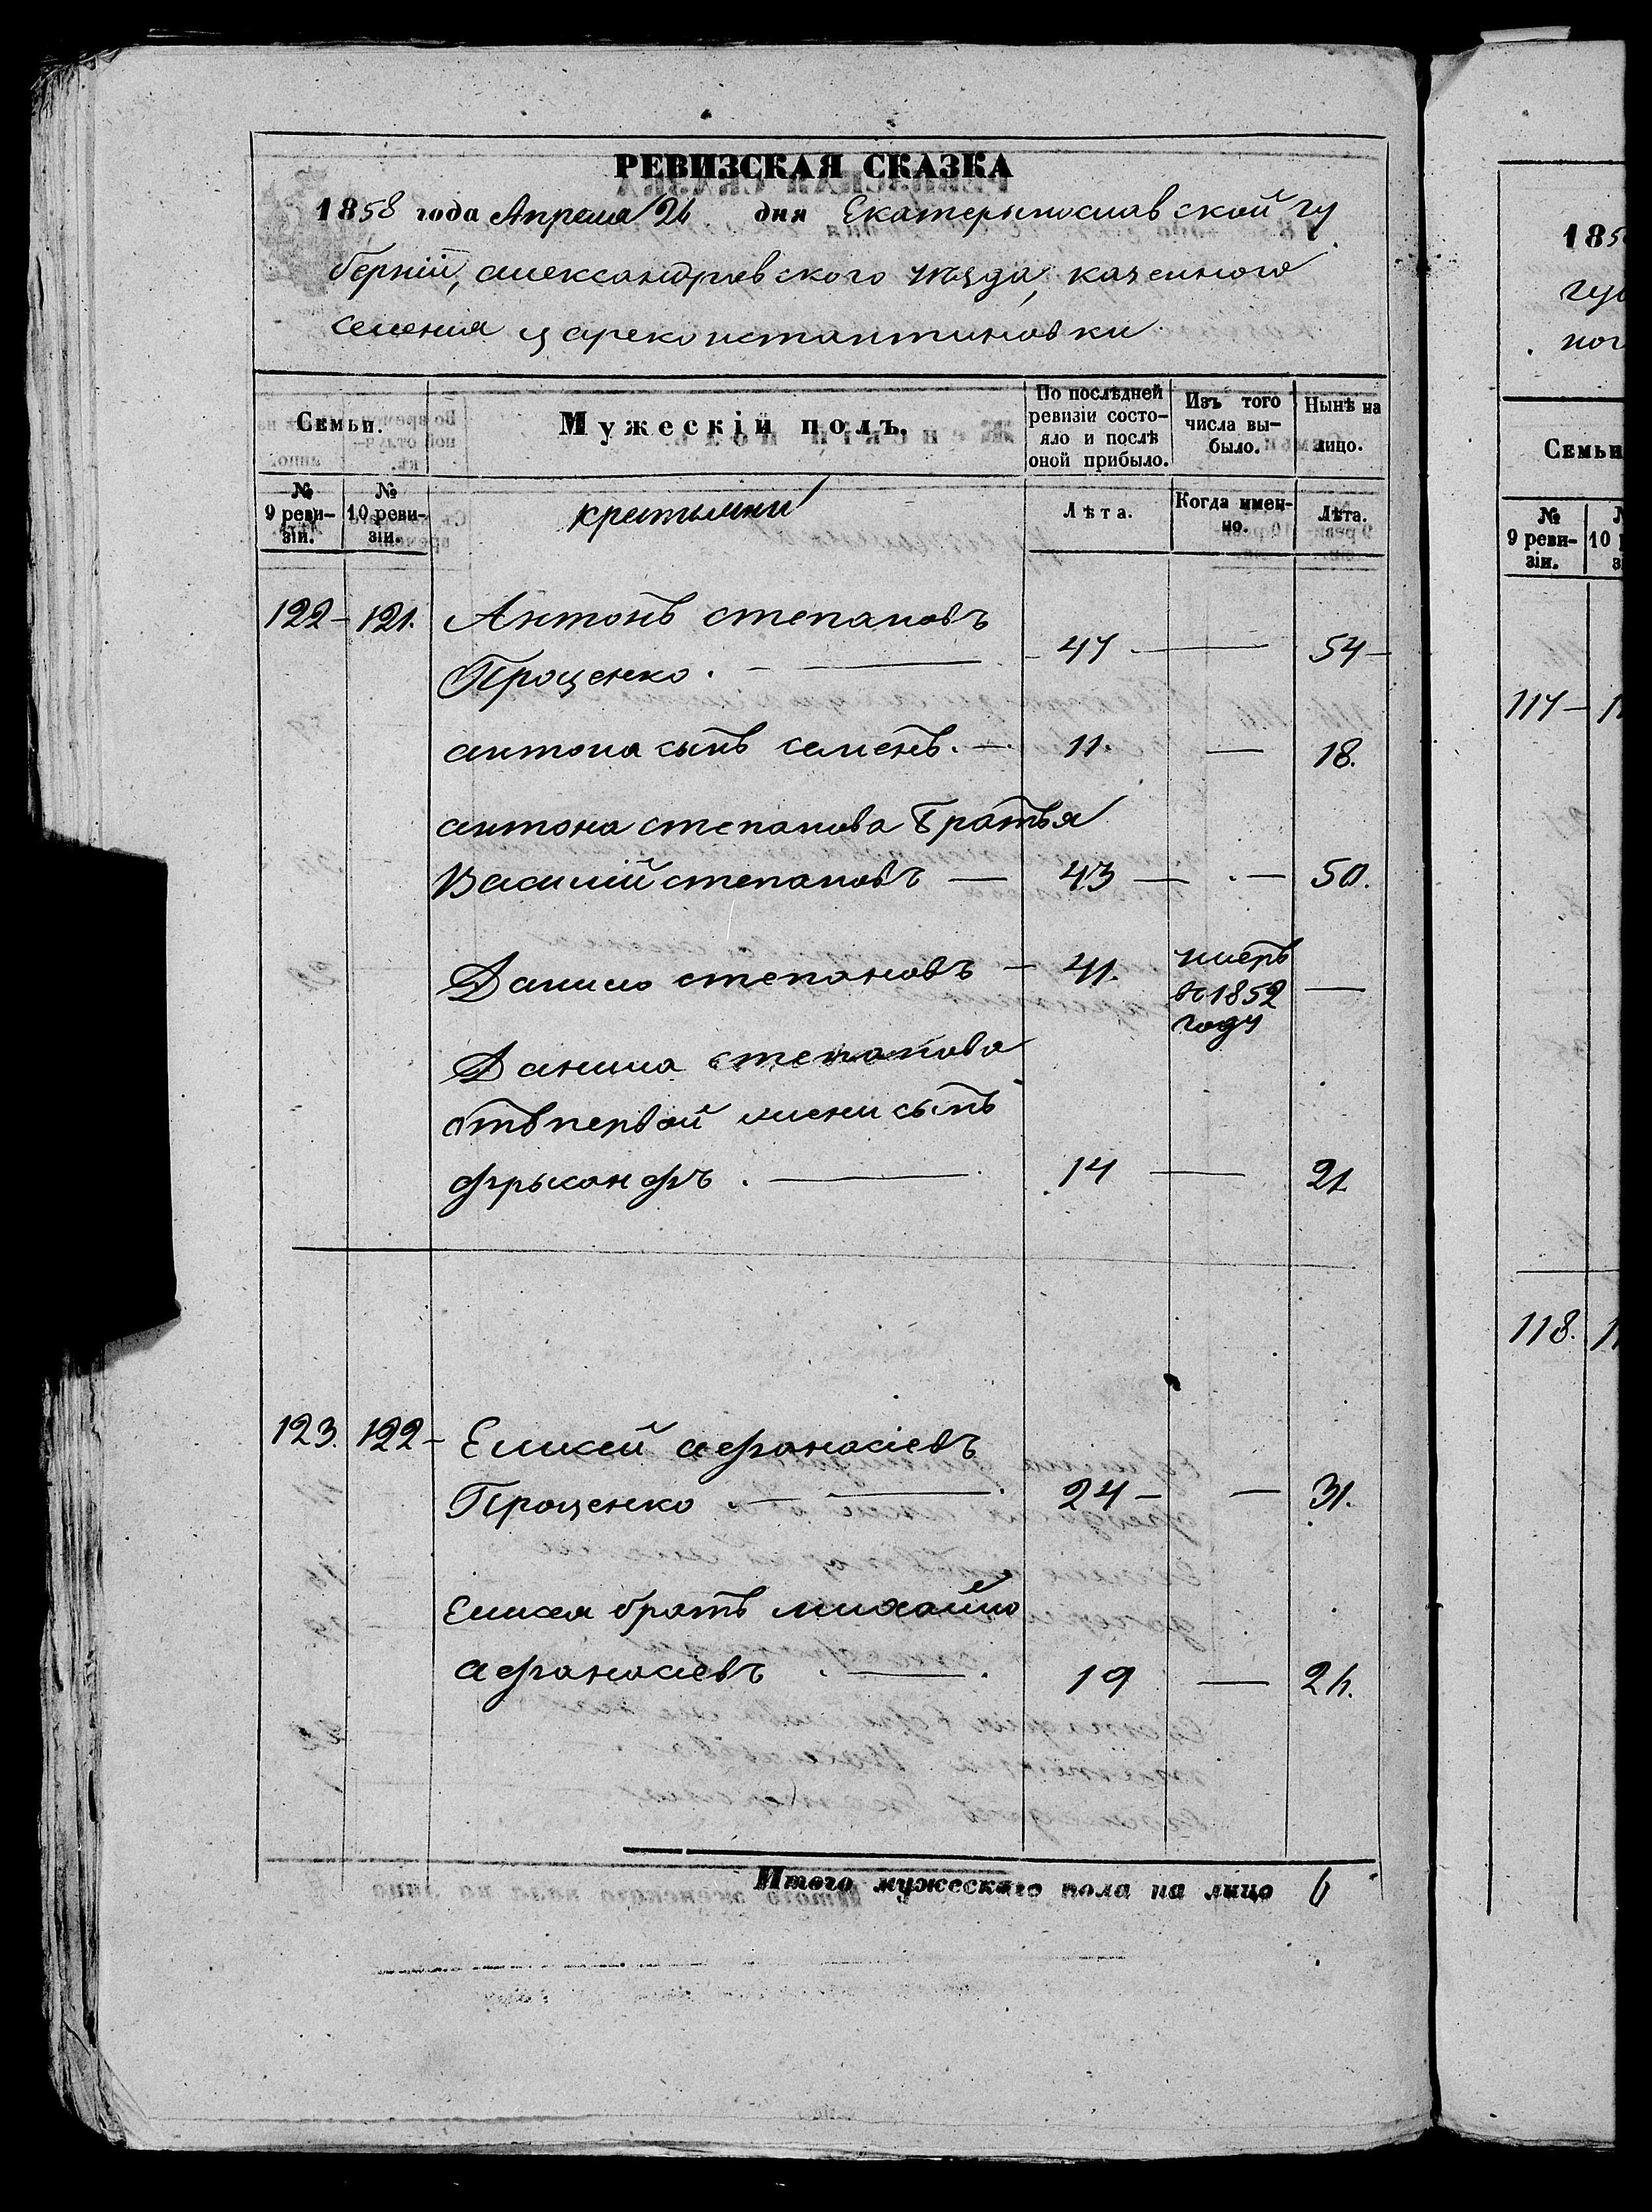 РЕВИЗСКАЯ СКАЗКА
1858 года Апреля 26 дня Екатерынославской гу
берніи, александровского уѣзда, казенного
селения цареконстантиновки
Семьи.
Мужескій полъ.
По послѣдней ревизіи состояло и послѣ оной прибыло.
Изъ того числа выбыло.
Нынѣ на лицо.
№ 9 ревизіи.
№ 10 ревизіи.
Лѣта.
Когда именно.
Лѣта.
122 - 121. Антонъ степановъ
Проценко. - 47 - 54
антона сынъ семенъ. - 11. - 18.
антона степанова братья
Василий степановъ - 43 - 50.
Данило степановъ - 41. умеръ въ 1852 году -
Данила степанова
отъ первой жены сынъ
фрыконфъ. - 14 - 21
123. 122 - Елисей афанасіевъ
Проценко. - 24 - 31.
Елисея братъ михайло
афанасиевъ. - 19 - 26.
Итого мужескаго пола на лицо 6
185
Семьи
№ 9 ревизіи.
117
118.